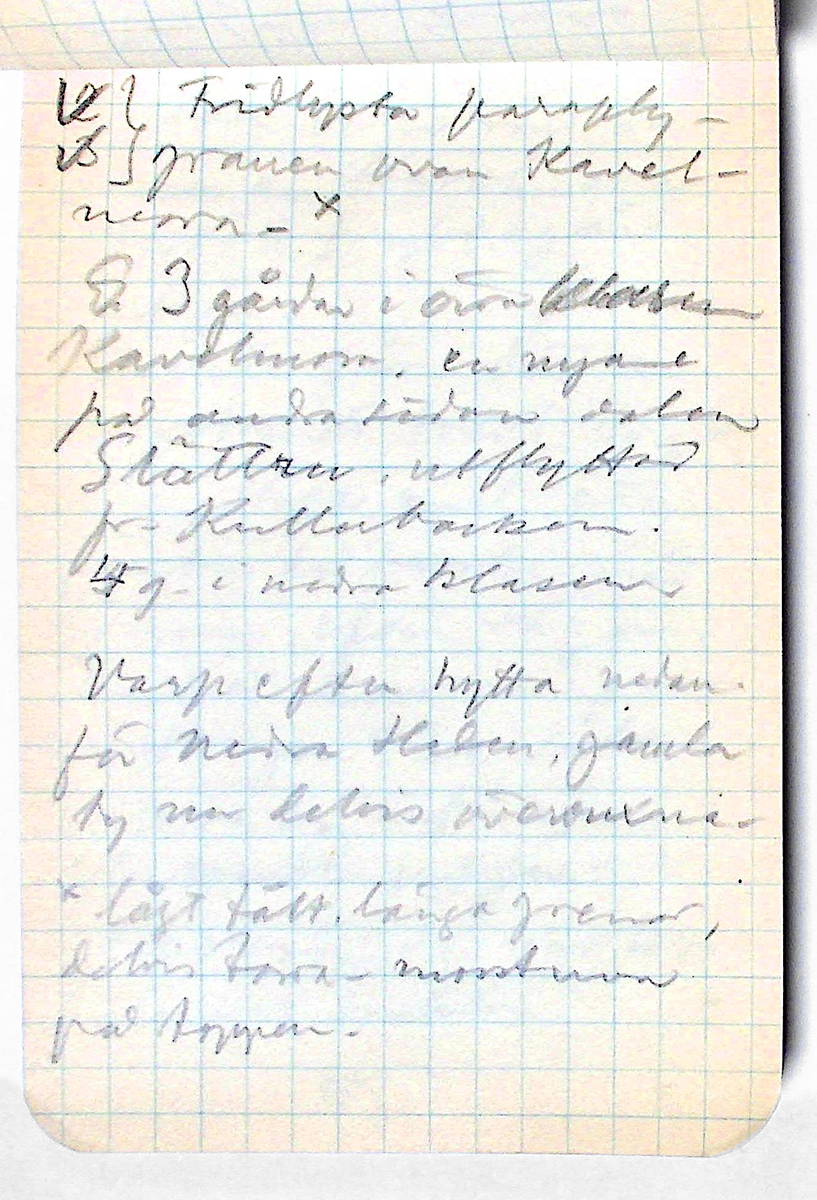 Fridlysta paraply-
granen ovan Kavel-
mora - x
3 gårdar i övre klasen
Kavelmora, en nyare
på andra sidan dalen
Slätten, utflyttad
fr. Kullerbacken.
4 g. i nedra klasen
Varp efter hytta nedan-
för nedra Heden, gamla
ty nu delvis övervuxna-
x lågt tält, långa grenar,
delvis torra -
på toppen.